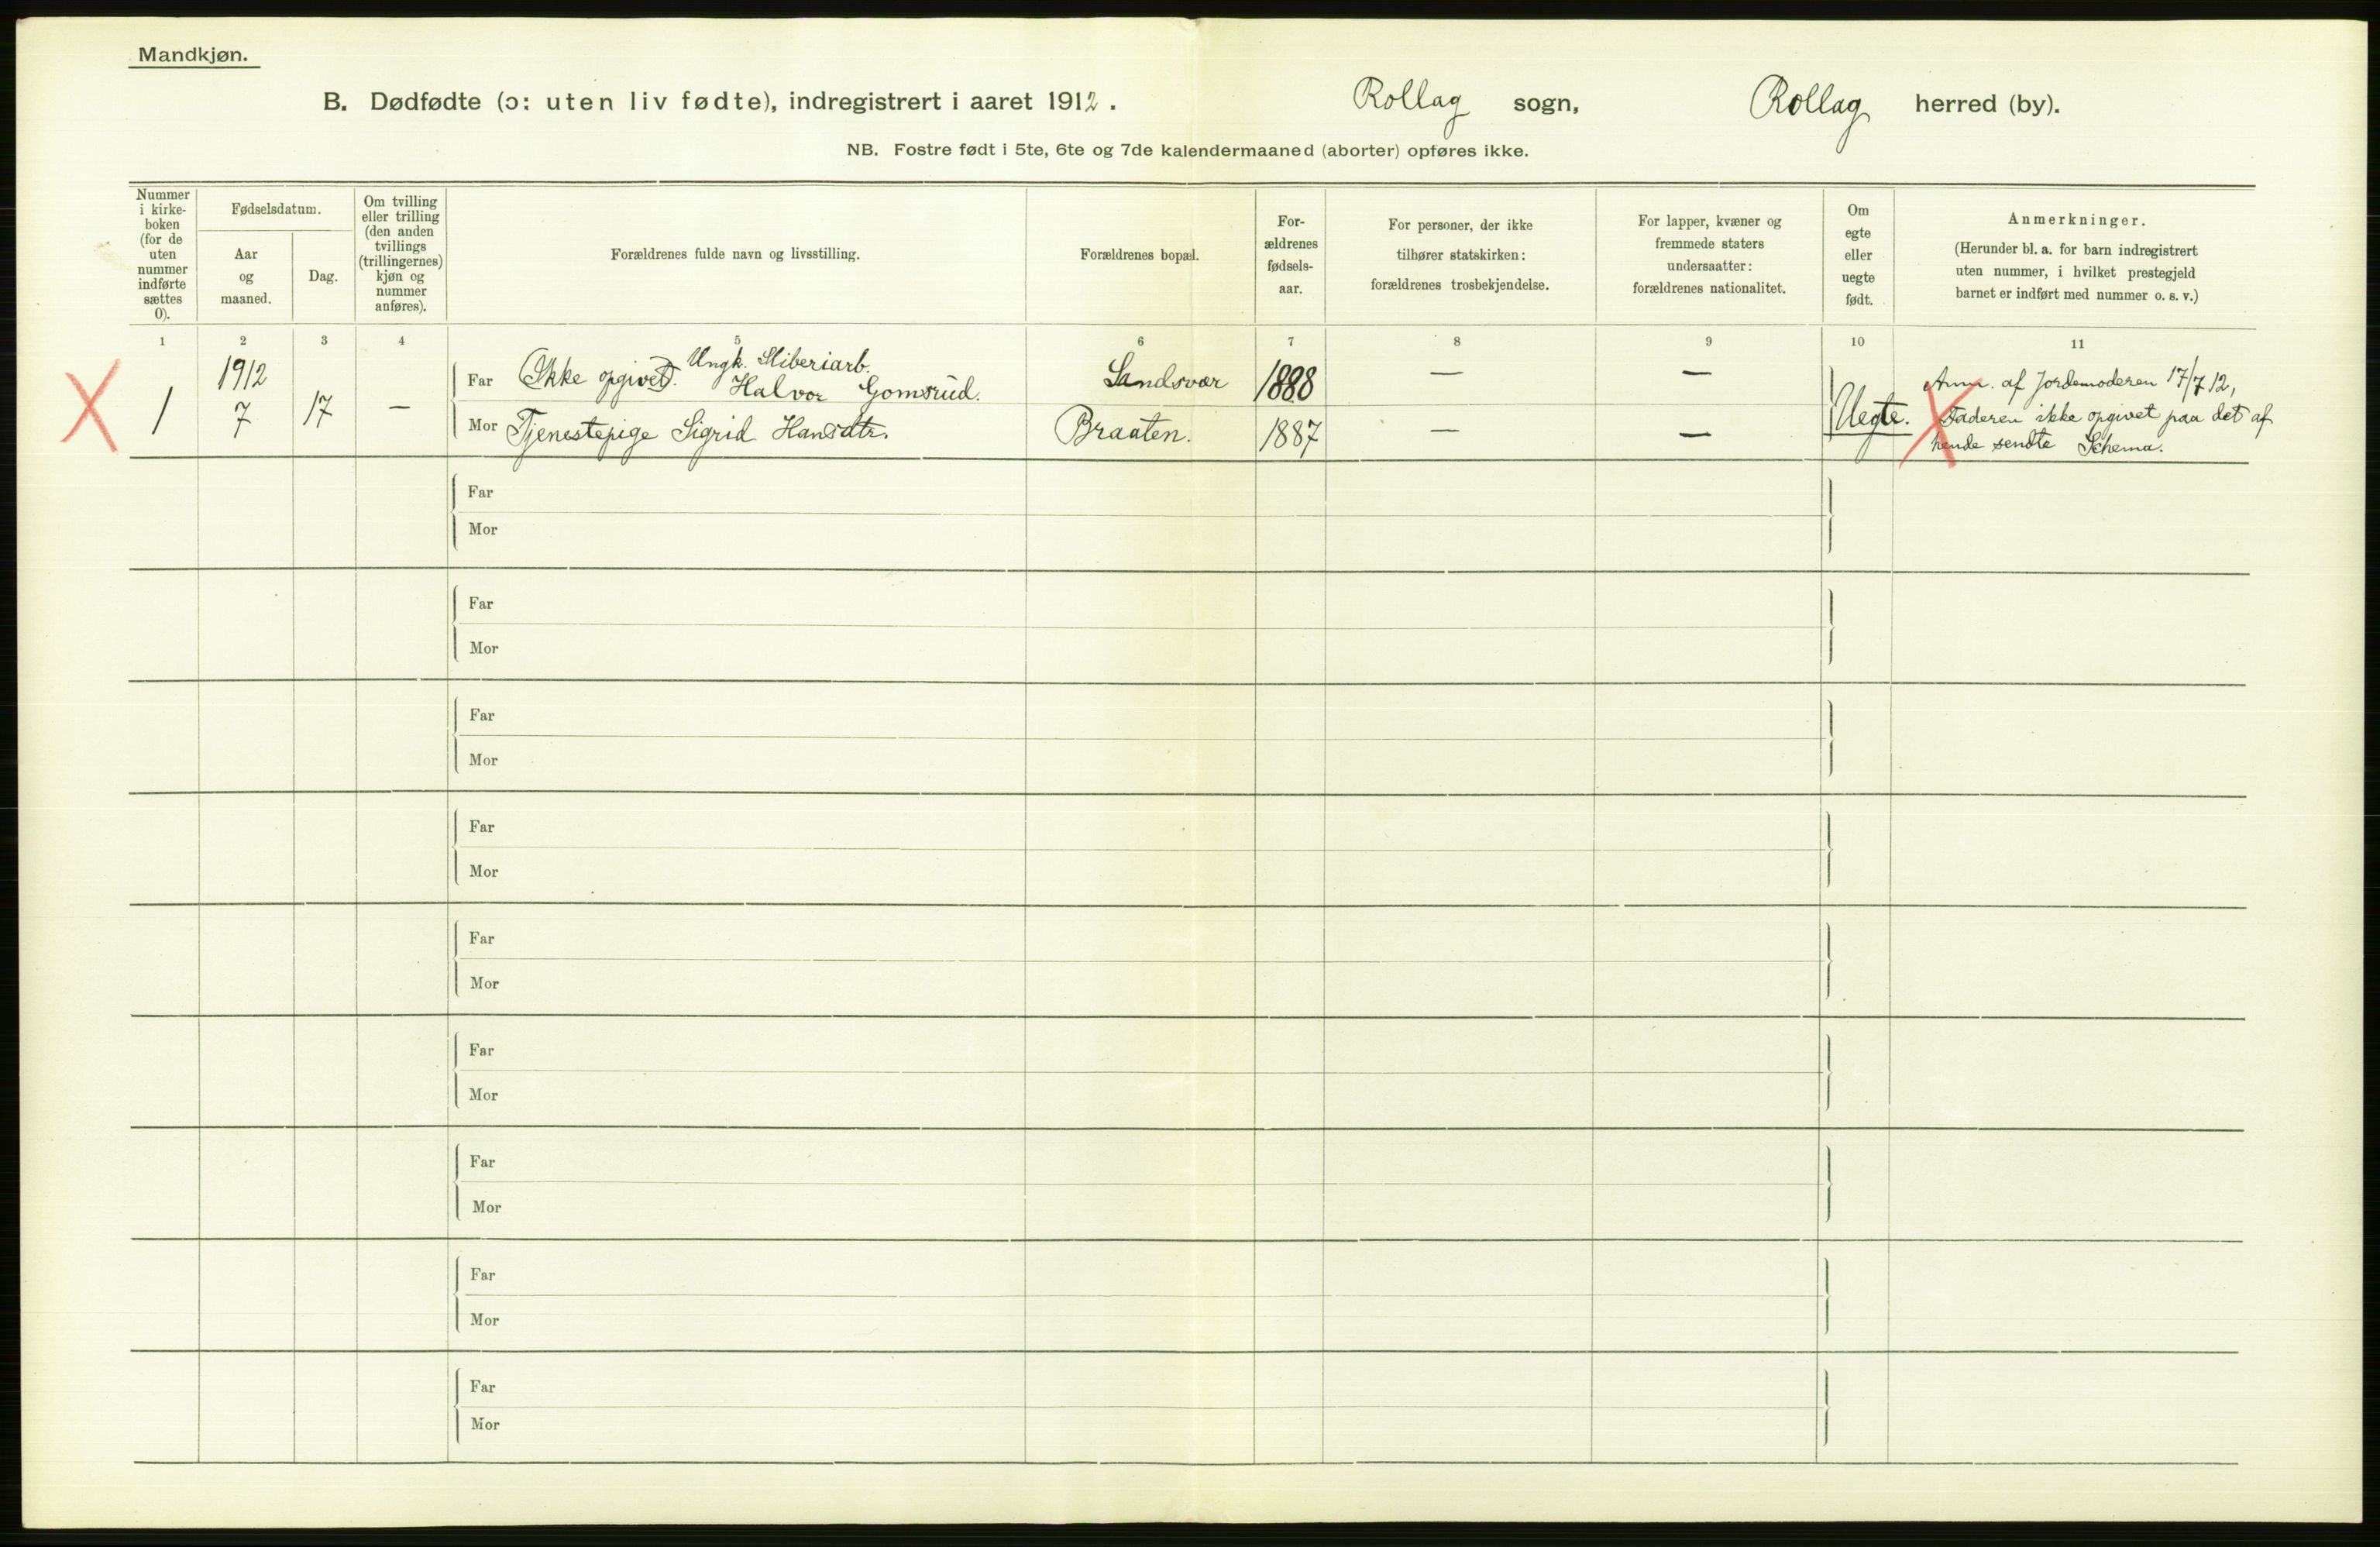 Mandkjøn.
B. Dødfødte (ɔ: uten liv fødte), indregistrert i aaret 1912. Rollag sogn, Rollag herred (by).
NB. Fostre født i 5te, 6te og 7de kalendermaaned (aborter) opføres ikke.
Nummer
i kirke-
boken
(for de
uten
nummer
indførte
sættes
0).
Fødselsdatum.
Aar
og
maaned.
Dag.
Om tvilling
eller trilling
(den anden
tvillings
(trillingernes)
kjøn og
nummer
anføres).
Forældrenes fulde navn og livsstilling.
Forældrenes bopæl.
For-
ældrenes
fødsels-
aar.
For personer, der ikke
tilhører statskirken:
forældrenes trosbekjendelse.
For lapper, kvæner og
fremmede staters
undersaatter:
forældrenes nationalitet.
Om
egte
eller
uegte
født.
Anmerkninger.
(Herunder bl. a. for barn indregistrert
uten nummer, i hvilket prestegjeld
barnet er indført med nummer o. s. v.)
1 2 3 4 5 6 7 8 9 10 11
X
1
1912
7
17
—
Ungk. Sliberiarb.
Far (Ikke opgivet). Halvor Gomsrud. Sandsvær 1888 — —
Mor Tjenestepige Sigrid Hansdtr. Braaten. 1887 — —
Uegte.
X
Anm. af Jordemoderen 17/7 12,
Faderen ikke opgivet paa det af
hende sendte Schema.
Far
Mor
Far
Mor
Far
Mor
Far
Mor
Far
Mor
Far
Mor
Far
Mor
Far
Mor
Far
Mor